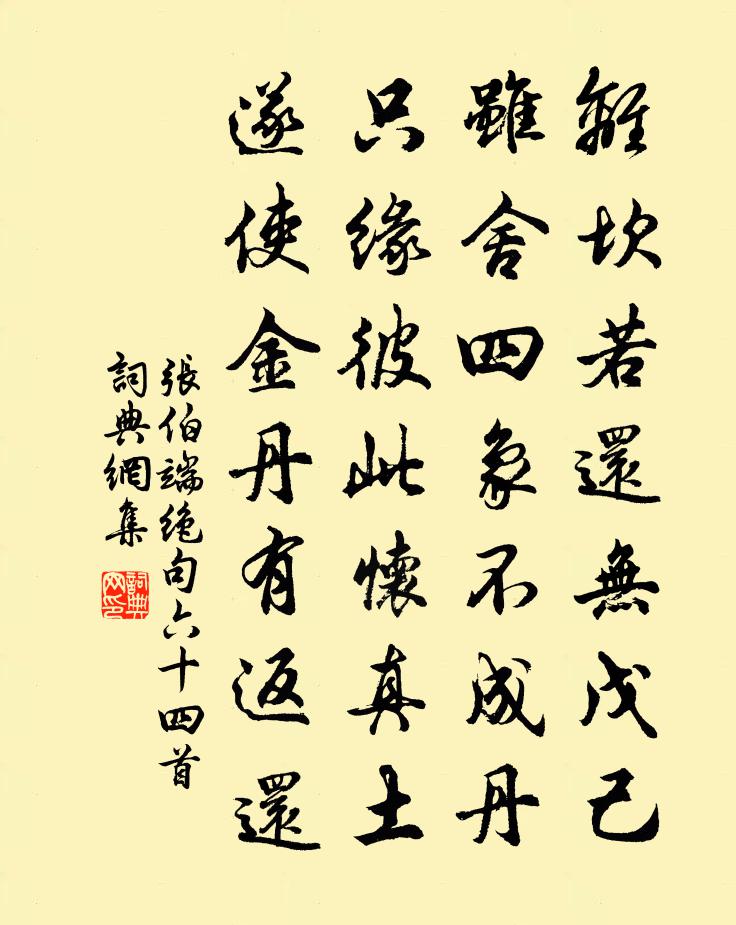 離坎若還無戊己
雖舍四象不成丹
只緣彼此懷真土
遂使金丹有返還
張伯端絕句六十四首
詞典網集
詞典网印